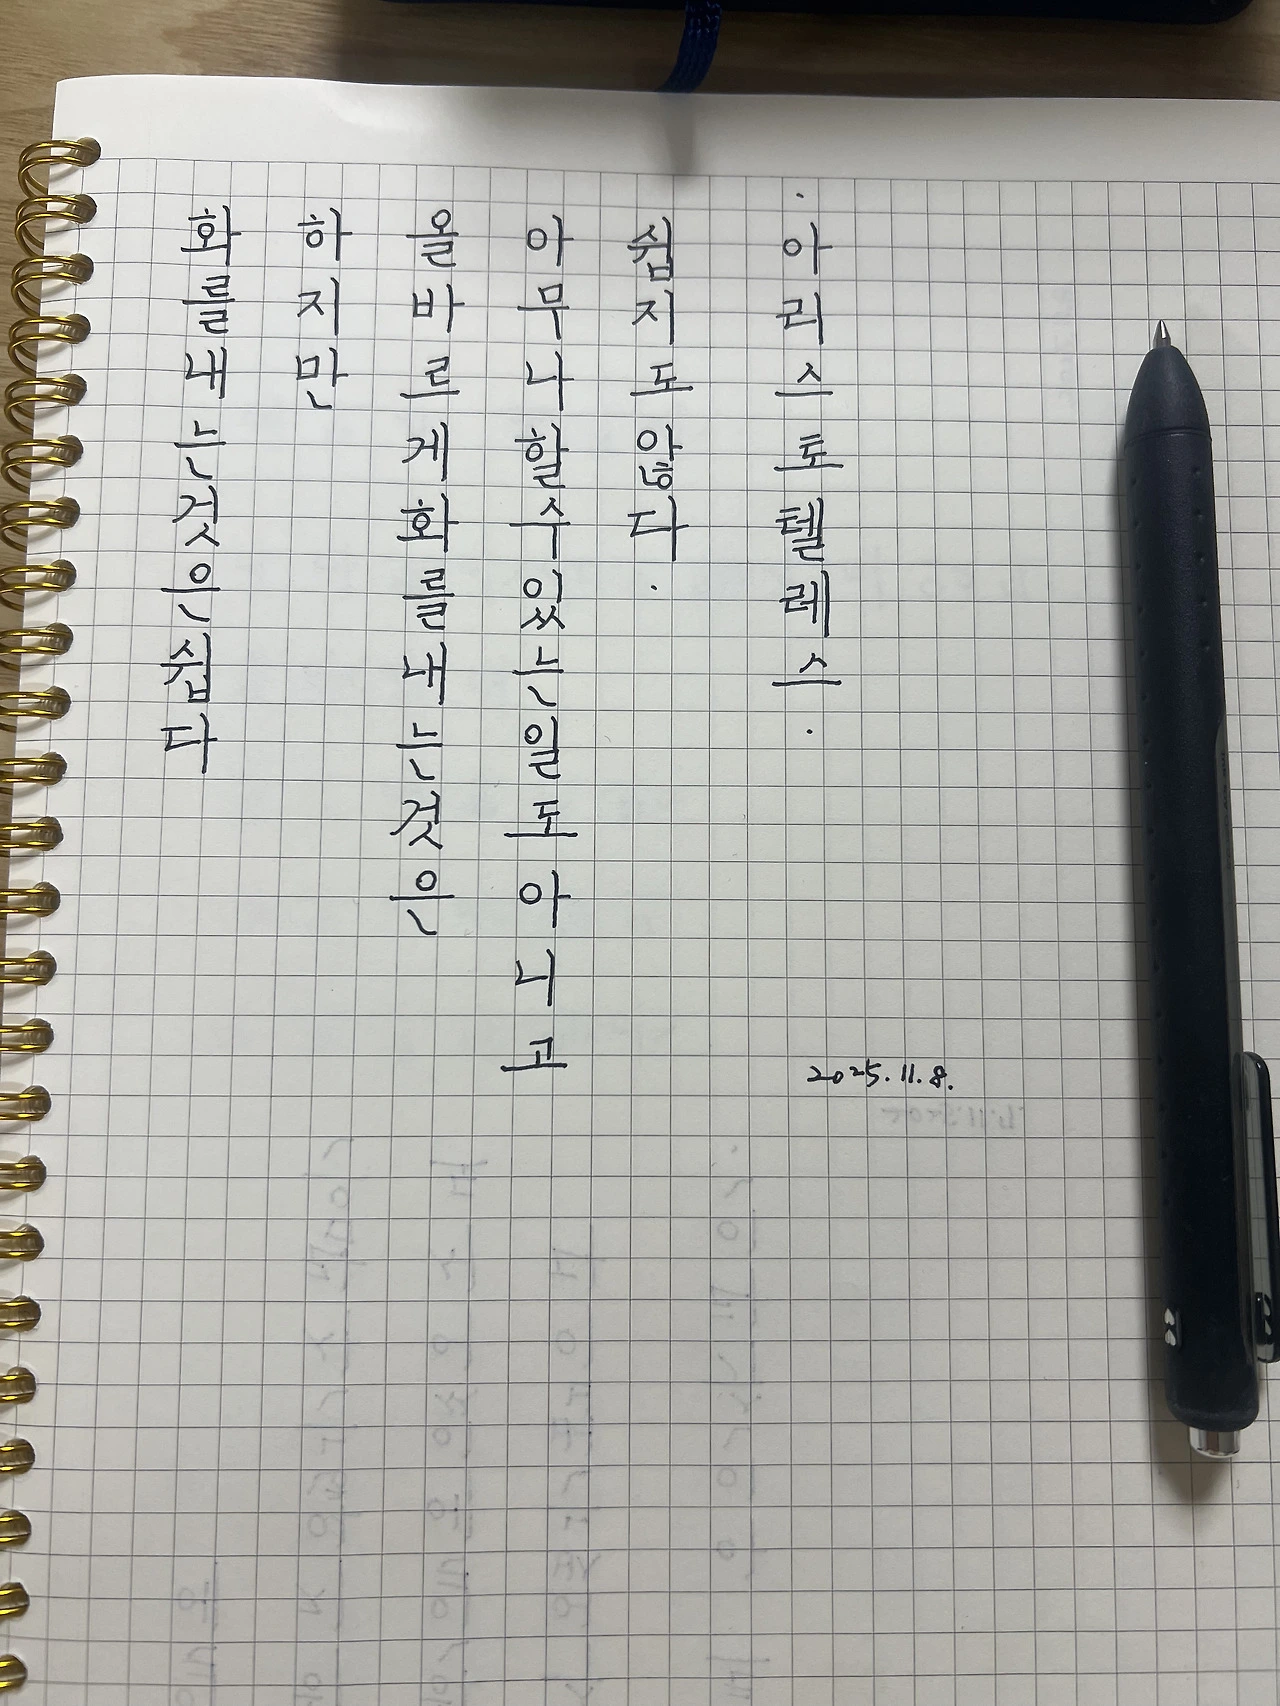 화를내는것은쉽다
하지만
올바르게화를내는것은
아무나할수있는일도아니고
쉽지도않다.
·아리스토텔레스·
2025.11.8.